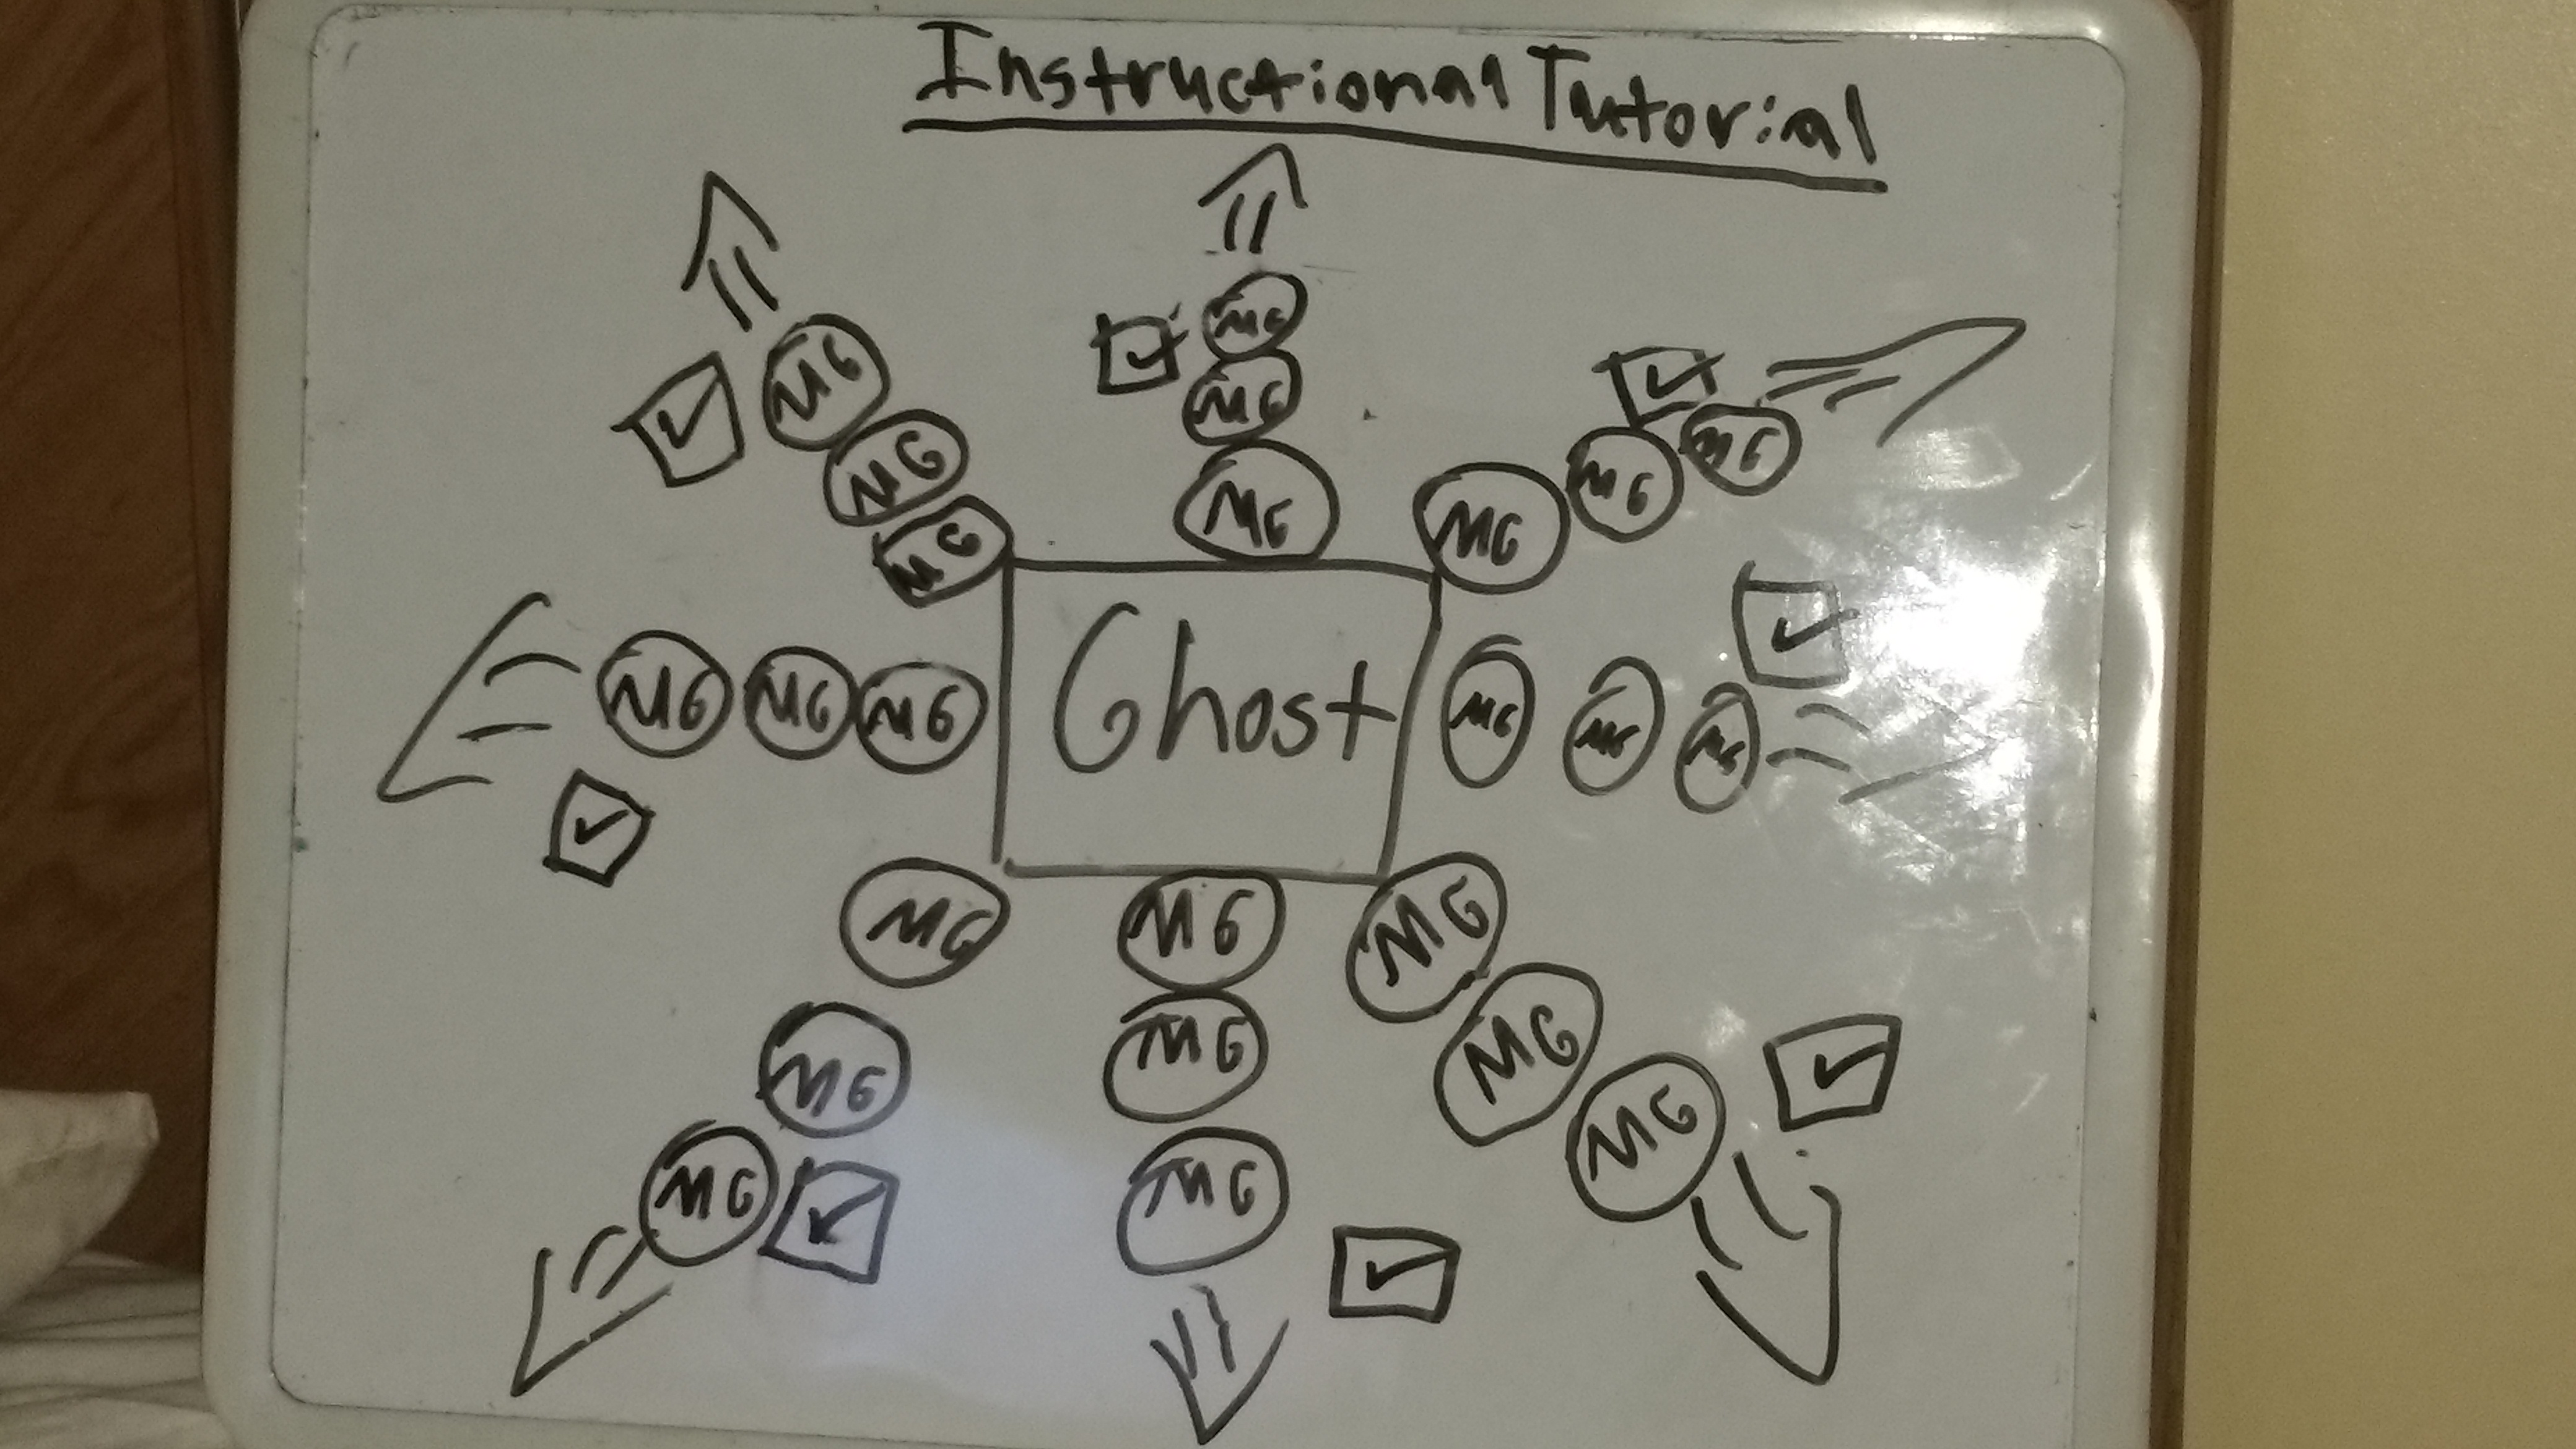 Instructional Tutorial
MG
MG
MG
MG
MG
MG
MG
MG
MG
MG
MG
MG
MG MG MG
Ghost
MG MG MG
MG
MG
MG
MG
MG
MG
MG
MG
MG